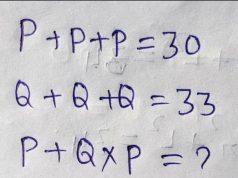 P + P + P = 30
Q + Q + Q = 33
P + Q × P = ?